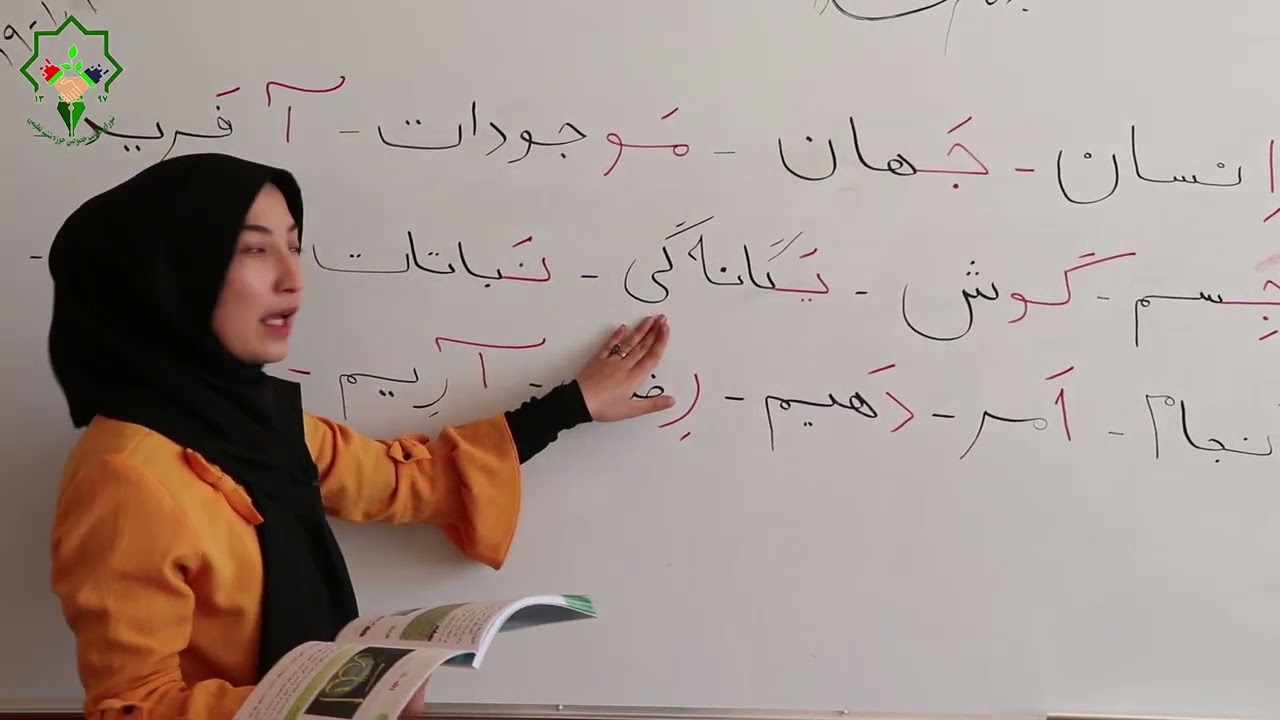 اِنسان - جَهان - مَوجودات - آفَرید
جِسم - گوش - یَگانه‌گی - نَباتات -
نجام - اَمر - دَهیم - آریم -